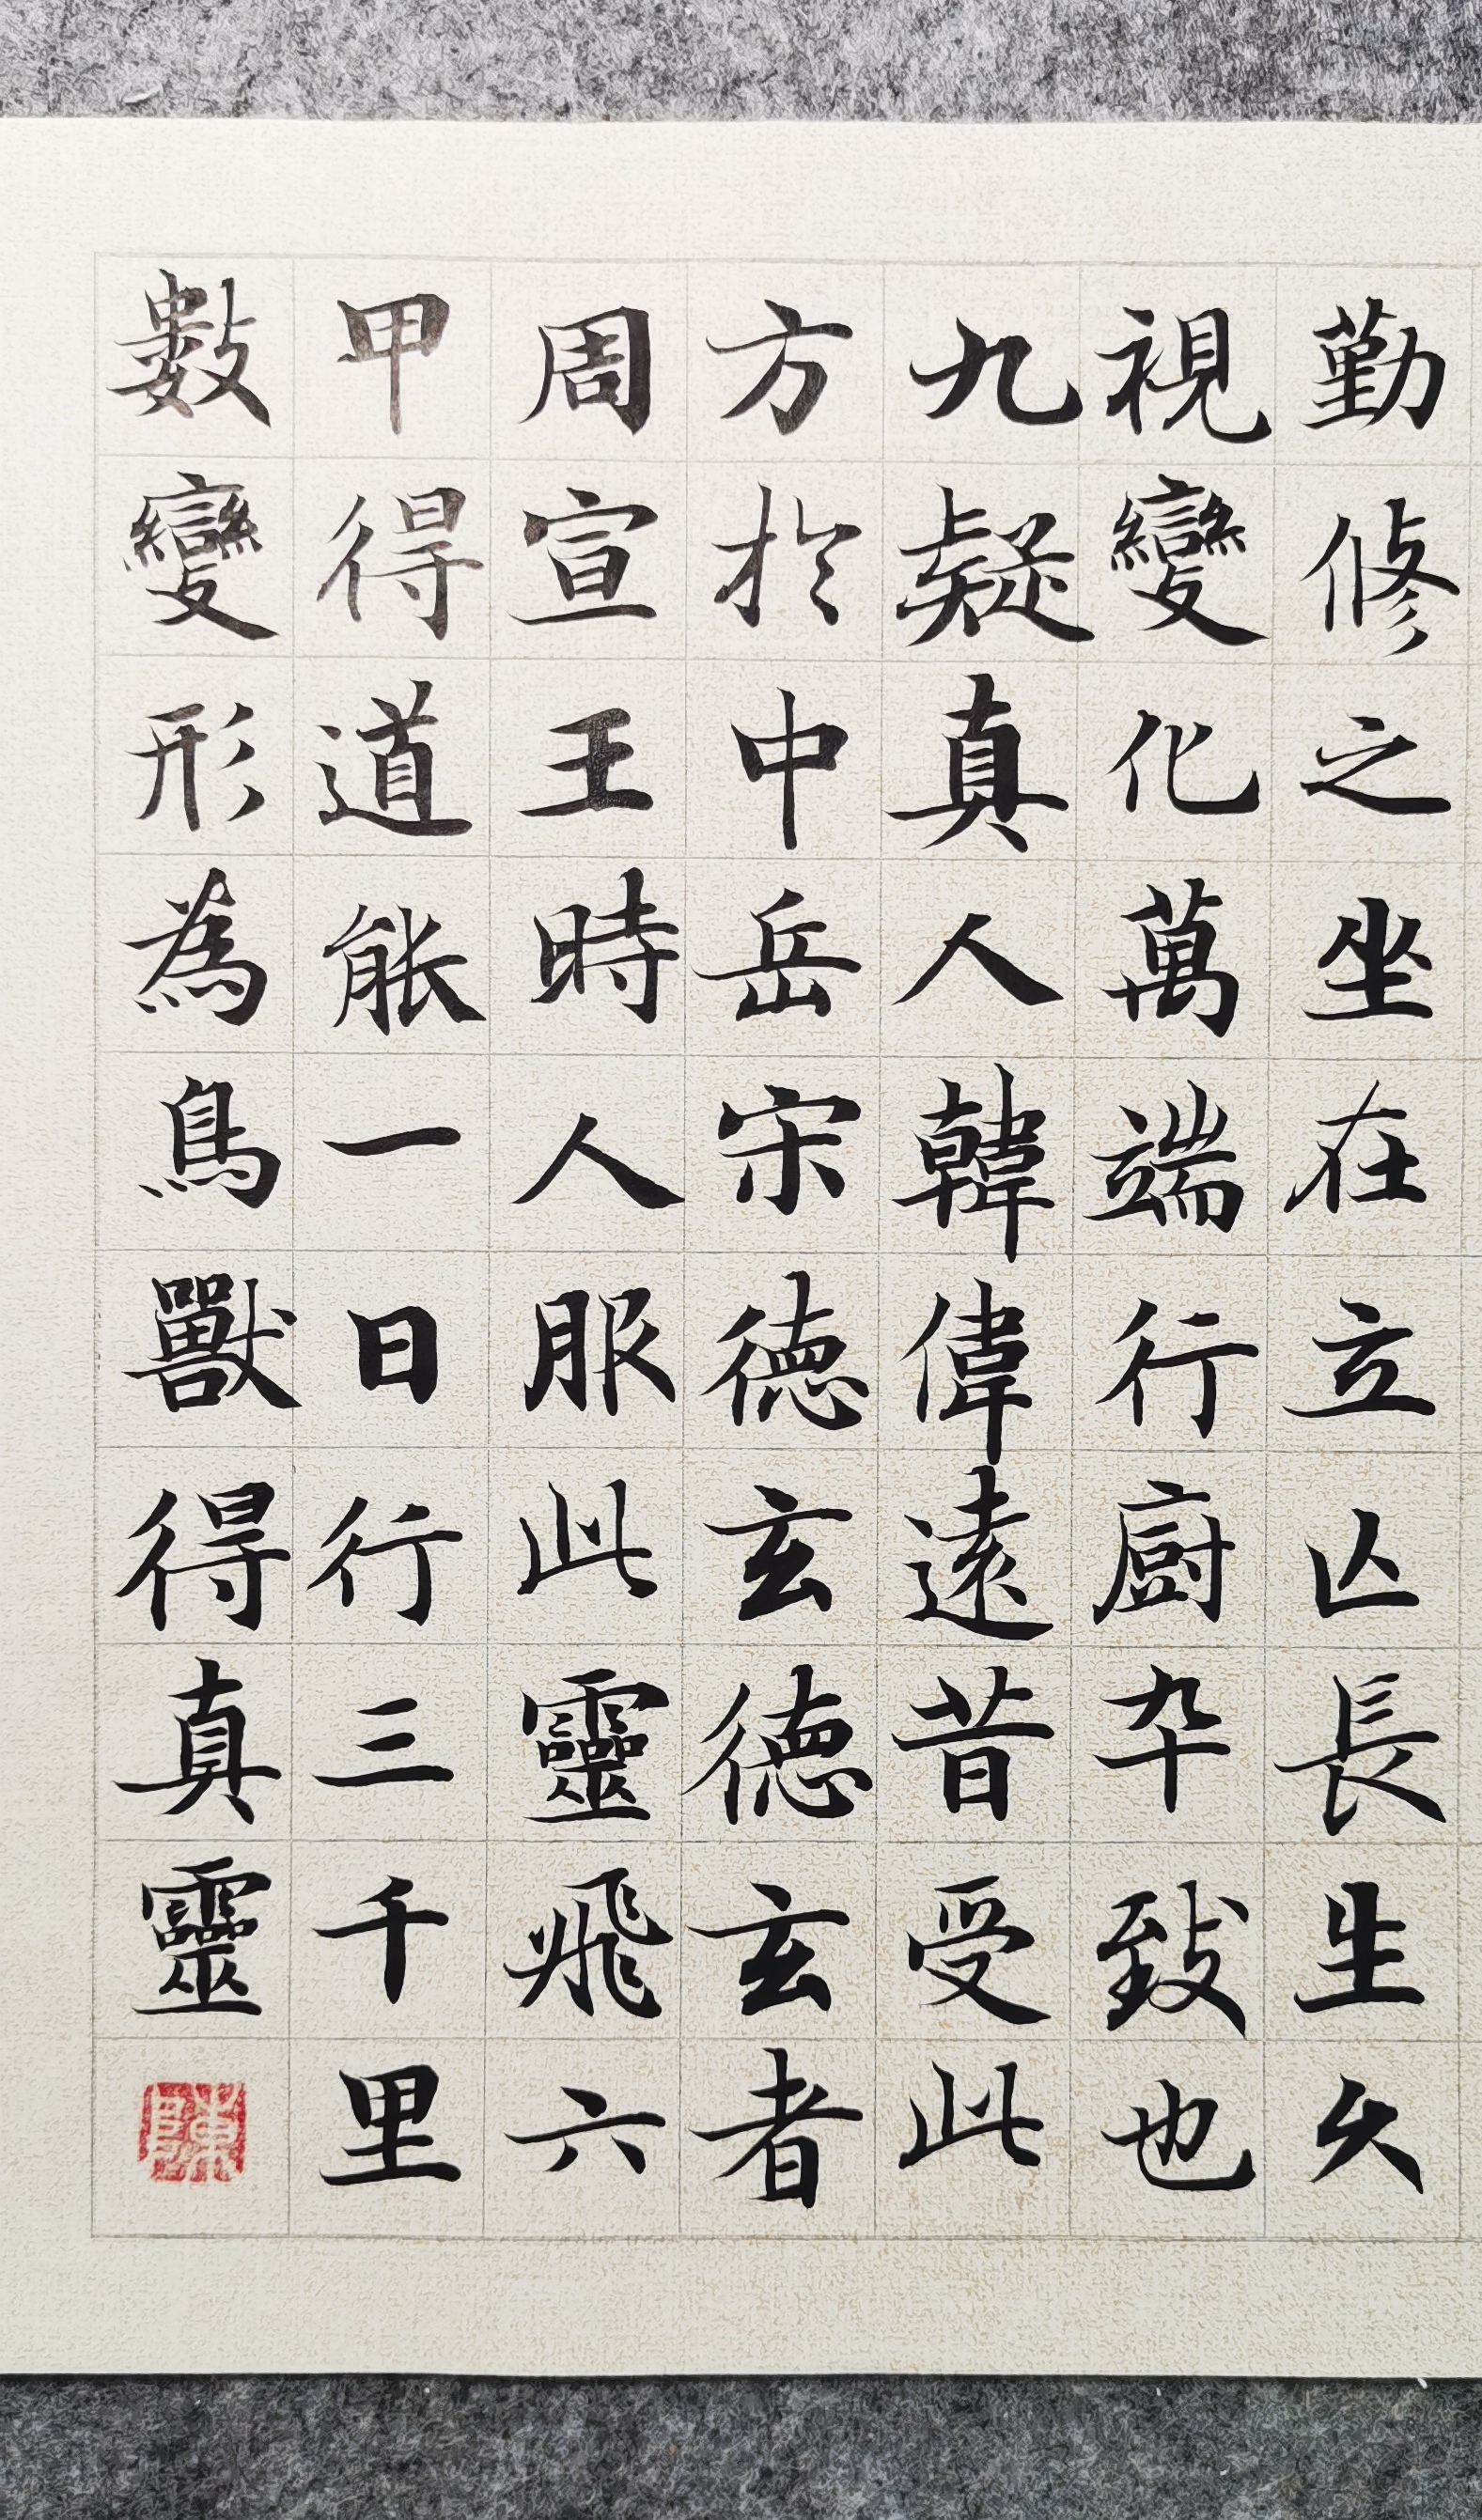 勤修之坐在立亾長生久
視變化萬端行廚卒致也
九疑真人韓偉遠昔受此
方於中岳宋德玄德玄者
周宣王時人服此靈飛六
甲得道能一日行三千里
數變形為鳥獸得真靈
陳